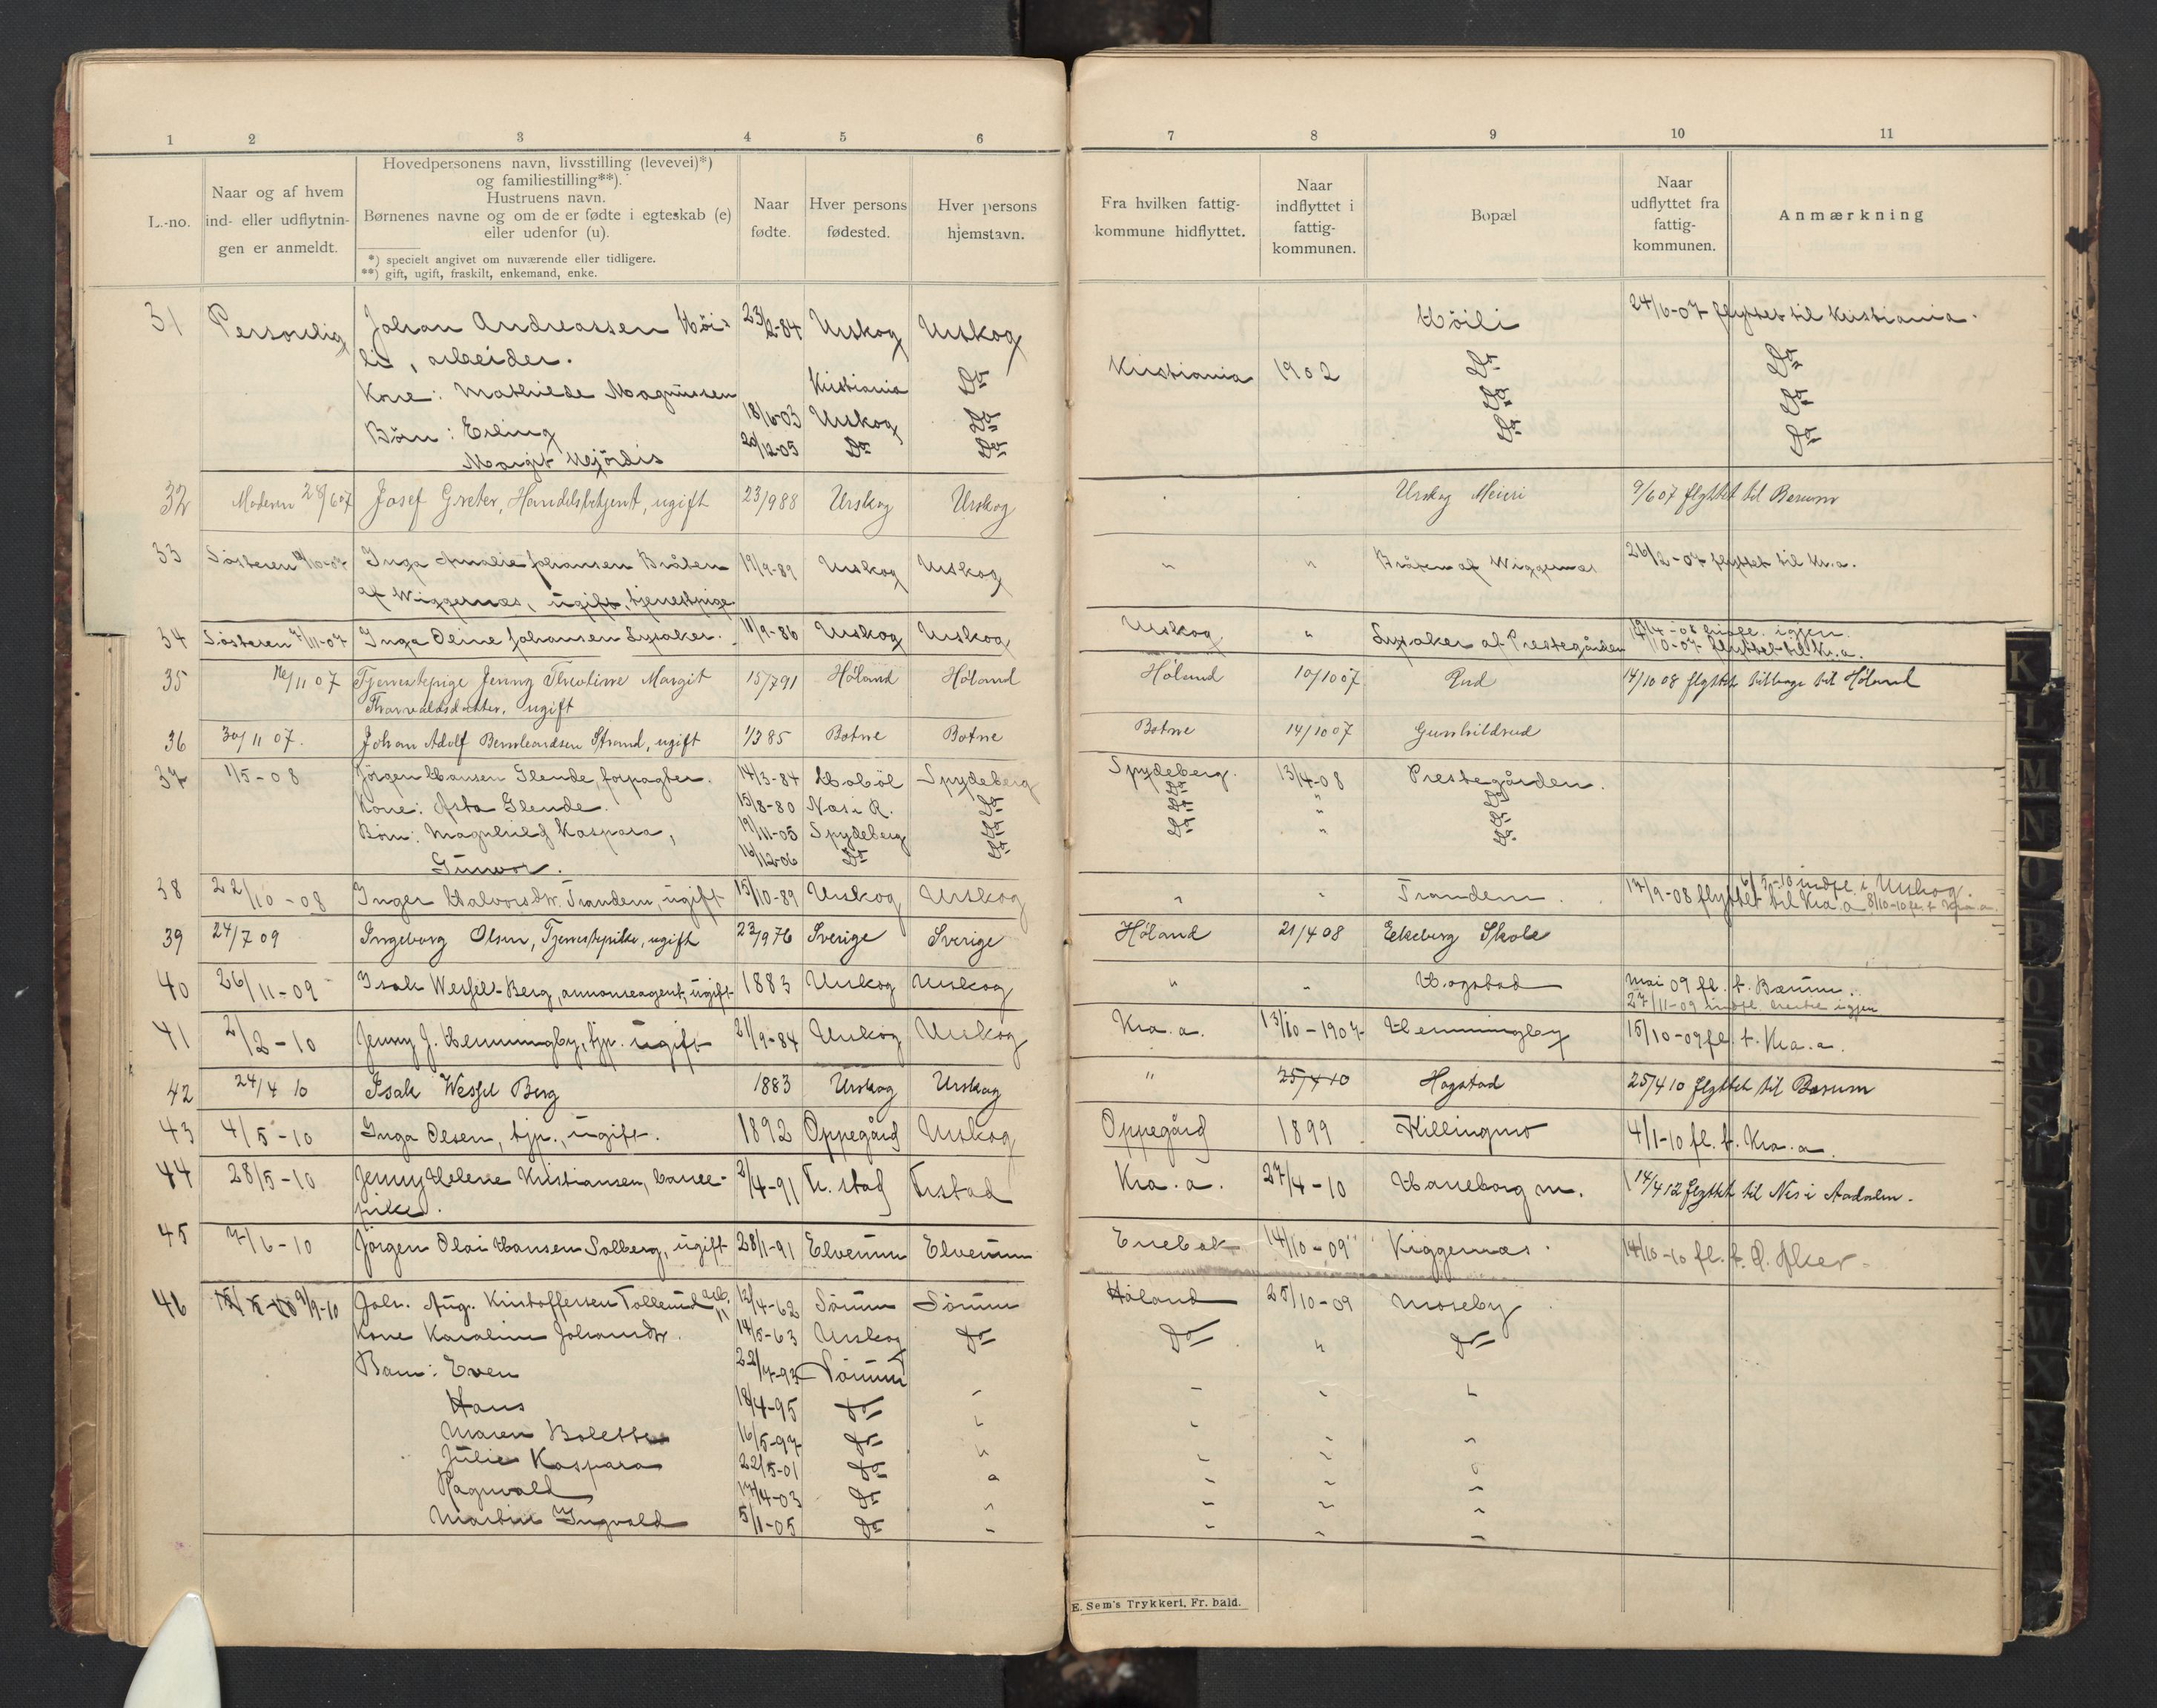 1 2 3 4 5 6 7 8 9 10 11
L.-no.
Naar og af hvem
ind- eller udflytnin-
gen er anmeldt.
Hovedpersonens navn, livsstilling (levevei)*)
og familiestilling**).
Hustruens navn.
Børnenes navne og om de er fødte i egteskab (e)
eller udenfor (u).
*) specielt angivet om nuværende eller tidligere.
**) gift, ugift, fraskilt, enkemand, enke.
Naar
fødte.
Hver persons
fødested.
Hver persons
hjemstavn.
Fra hvilken fattig-
kommune hidflyttet.
Naar
indflyttet i
fattig-
kommunen.
Bopæl
Naar
udflyttet fra
fattig-
kommunen.
Anmærkning
31 Personlig Johan Andreassen Höi- 23/2-84 Urskog Urskog Höili 24/6-07 flyttet til Kristiania.
li, arbeider.
Kone: Mathilde Magnussen Kristiania Do Kristiania 1902 Do Do
Börn: Erling 18/6-03 Urskog Do Do Do
Margit Hjördis 20/12-05 Do Do Do Do
32 Moderen 28/6 07 Josef Greter, Handelsbetjent, ugift 23/9 88 Urskog Urskog Urskog Meieri 9/6 07 flyttet til Bærum
33 Søsteren Inga Amalie Johansen Bråten 19/9-89 Urskog Urskog " " Bråten af Wiggernæs 26/2-07 flyttet til Kr.a.
af Wiggernæs, ugift, tjenestpige.
34 Søsteren 7/11-07 Inga Oline Johansen Lysaker. 11/9-86 Urskog Urskog Urskog " Lysaker af Prestegården indfl. igjen.
10-07 flyttet til Kr.a.
35 16/11 07 Tjenestepige Jenny Kristine Margit 15/7 91 Høland Høland Høland 10/10 07 Rud 14/10 08 flyttet tilbage til Høland
Thorvaldsdatter, ugift
36 30/11 07. Johan Adolf Bernhardsen Strand, ugift 1/3 85 Botne Botne Botne 14/10 07 Gunhildrud
37 1/5-08 Jörgen Hansen Glende, forpagter. 14/3-84 Haböl Spydeberg Spydeberg. 13/4-08 Prestegården.
Kone: Asta Glende. 15/8-80 Nas i R. Do Do " Do
Börn: Magnhild Kaspara, 19/11-05 Spydeberg Do Do " Do
Gunvor. 16/12-06 Do Do Do Do
38 22/10-08 Inger Halvorsdtr. Trandem, ugift 15/10-89 Urskog Urskog " " Trandem. 6/5-10 indfl. i Urskog.
17/9-08 flyttet til Kra.a 8/10-10 fl. t. Kra.a.
39 24/7 09 Ingeborg Olsen, Tjenestepike, ugift 23/9 76 Sverige Sverige Høland 21/4 08 Eekeberg Skole
40 26/11-09 Isak Wessel-Berg, annonseagent, ugift 1883 Urskog Urskog " " Hogstad Mai 09 fl. t. Bærum.
27/11-09 indfl. igjen
41 2/2-10 Jenny J. Hemmingby, tjp. ugift 21/9-84 Urskog Urskog Kra.a. 13/10-1907 Hemmingby 15/10-09 fl. t. Kra.a.
42 24/4 10 Isak Wessel Berg 1883 Urskog Urskog " 25/4 10 Hogstad 25/4 10 flyttet til Bærum
43 4/5-10 Inga Olsen, tjp., ugift. 1892 Oppegård Urskog Oppegård 1899 Killingmo 4/1-10 fl. t. Kra.a.
44 28/5-10 Jenny Helene Kristiansen, barne- 2/4-91 Fr.stad Frstad Kra.a. 27/4-10 Haneborg m. 14/4 12 flyttet til Nes i Aadalen.
pike.
45 7/6-10 Jörgen Olai Hansen Solberg, ugift 28/1-91 Elverum Elverum Enebak 14/10-09 Kiggernæs. 14/10-10 fl. t. Ö. Aker.
46 9/9-10 Joh. Aug. Kristoffersen Tollerud, arb. 12/4-62 Sörum Sörum Høland 25/10-09 Moseby
Kone Karoline Johansdtr. 14/5-63 Urskog Do Do " Do
Barn: Even 22/7-93 Sörum
Hans 18/4-95 Do
Maren Bolette 16/5-97 Do
Julie Kaspara 22/5-01 Do
Ragnvald 17/4-03 Do
Martin Ingvald 5/1-05 Do
E. Sem's Trykkeri, Fr. hald.
K
L
M
N
O
P
Q
R
S
T
U
V
W
X
Y
Z